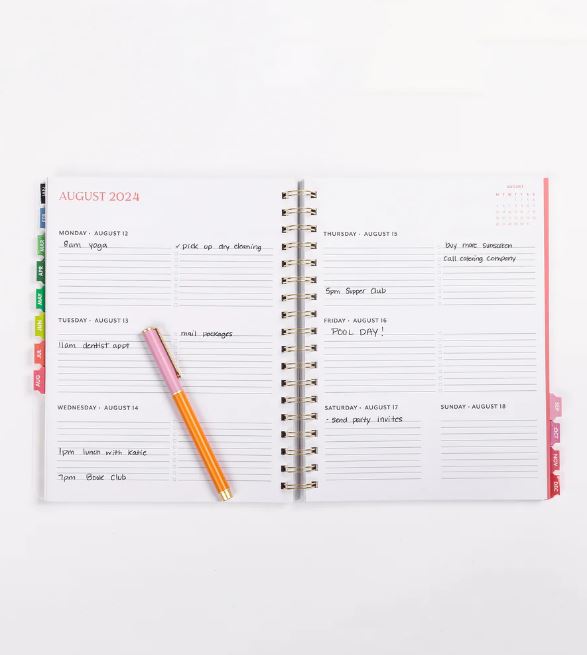 AUGUST 2024
MONDAY · AUGUST 12
8am yoga
✓ pick up dry cleaning
TUESDAY · AUGUST 13
mail packages
11am dentist appt
WEDNESDAY · AUGUST 14
1pm lunch with Katie
7pm Book Club
THURSDAY · AUGUST 15
buy more sunscreen
Call catering company
5pm Supper Club
FRIDAY · AUGUST 16
POOL DAY!
SATURDAY · AUGUST 17
- send party invites
SUNDAY · AUGUST 18
AUGUST
MAR
APR
MAY
JUN
JUL
AUG
SEP
OCT
NOV
DEC